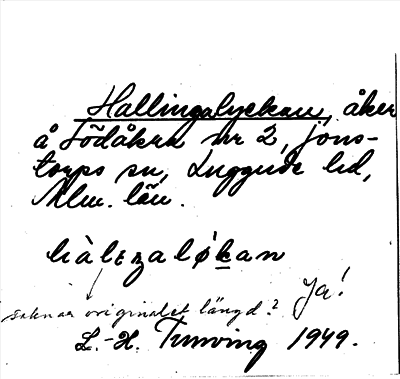 Hallingalyckan, åker
å Södåkra nr 2, Jons-
torps sn, Luggude hd,
Mlm. län.
hàlɛŋaløkan
saknar originalet längd? Ja!
L.-H. Tunving 1949.